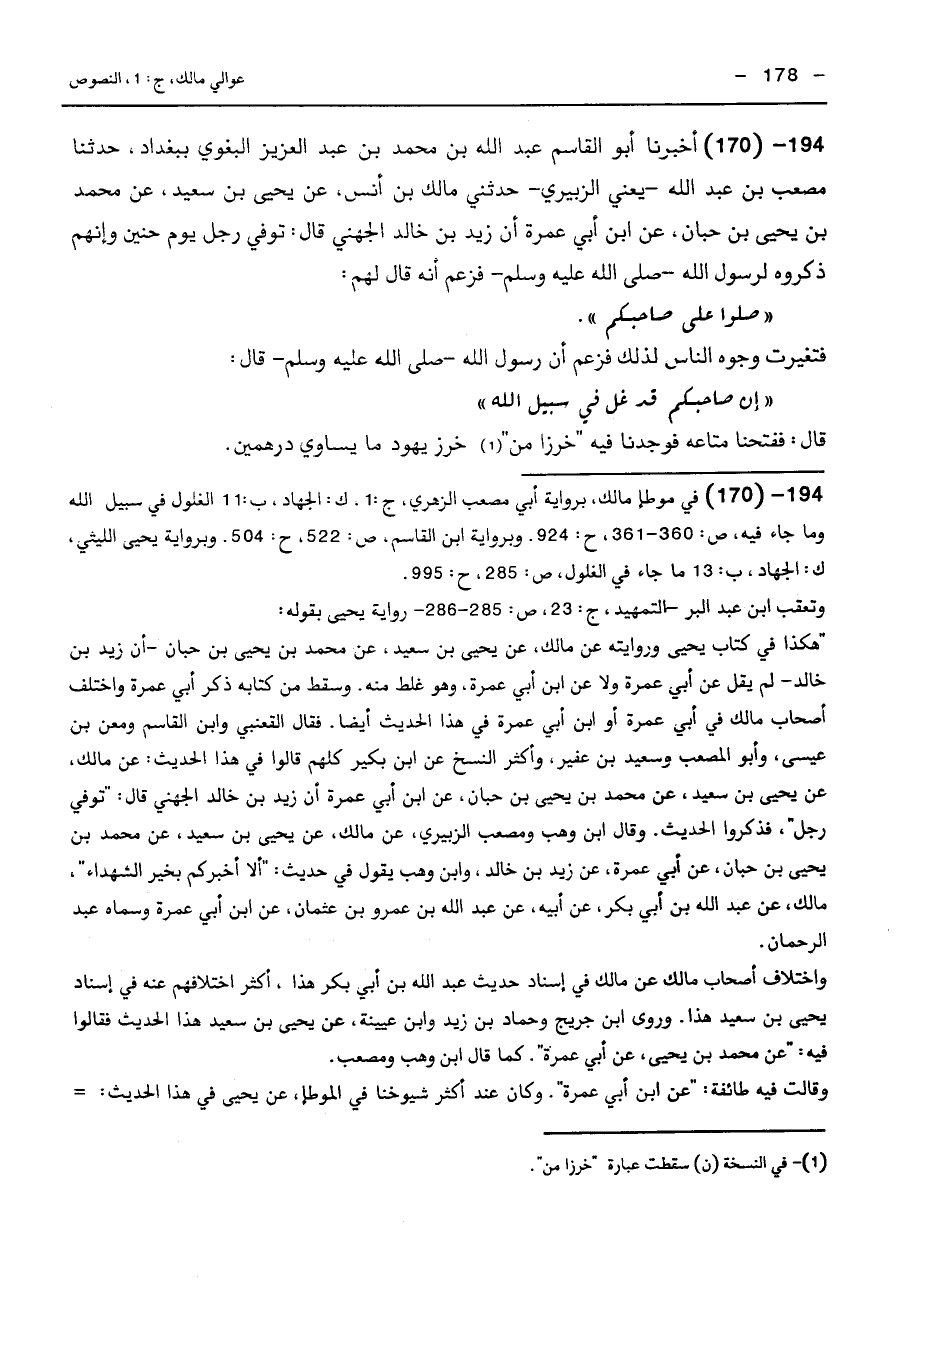 - 178 - عوالي مالك، ج: 1، النصوص
194- (170) أخبرنا أبو القاسم عبد الله بن محمد بن عبد العزيز البغوي ببغداد، حدثنا
مصعب بن عبد الله -يعني الزبيري- حدثني مالك بن أنس، عن يحيى بن سعيد، عن محمد
بن يحيى بن حبان، عن ابن أبي عمرة أن زيد بن خالد الجهني قال: توفي رجل يوم حنين وإنهم
ذكروه لرسول الله -صلى الله عليه وسلم- فزعم أنه قال لهم:
«صلوا على صاحبكم».
فتغيرت وجوه الناس لذلك فزعم أن رسول الله -صلى الله عليه وسلم- قال:
«إن صاحبكم قد غل في سبيل الله»
قال: ففتحنا متاعه فوجدنا فيه "خرزا من"(1) خرز يهود ما يساوي درهمين.
194- (170) في موطإ مالك، برواية أبي مصعب الزهري، ج:1. ك: الجهاد، ب:11 الغلول في سبيل الله
وما جاء فيه، ص: 360-361، ح: 924. وبرواية ابن القاسم، ص: 522، ح: 504. وبرواية يحيى الليثي،
ك: الجهاد، ب: 13 ما جاء في الغلول، ص: 285، ح: 995.
وتعقب ابن عبد البر -التمهيد، ج: 23، ص: 285-286- رواية يحيى بقوله:
"هكذا في كتاب يحيى وروايته عن مالك، عن يحيى بن سعيد، عن محمد بن يحيى بن حبان -أن زيد بن
خالد- لم يقل عن أبي عمرة ولا عن ابن أبي عمرة، وهو غلط منه. وسقط من كتابه ذكر أبي عمرة واختلف
أصحاب مالك في أبي عمرة أو ابن أبي عمرة في هذا الحديث أيضا. فقال القعنبي وابن القاسم ومعن بن
عيسى، وأبو المصعب وسعيد بن عفير، وأكثر النسخ عن ابن بكير كلهم قالوا في هذا الحديث: عن مالك،
عن يحيى بن سعيد، عن محمد بن يحيى بن حبان، عن ابن أبي عمرة أن زيد بن خالد الجهني قال: "توفي
رجل"، فذكروا الحديث. وقال ابن وهب ومصعب الزبيري، عن مالك، عن يحيى بن سعيد، عن محمد بن
يحيى بن حبان، عن أبي عمرة، عن زيد بن خالد، وابن وهب يقول في حديث: "ألا أخبركم بخير الشهداء"،
مالك، عن عبد الله بن أبي بكر، عن أبيه، عن عبد الله بن عمرو بن عثمان، عن ابن أبي عمرة وسماه عبد
الرحمان.
واختلاف أصحاب مالك عن مالك في إسناد حديث عبد الله بن أبي بكر هذا، أكثر اختلافهم عنه في إسناد
يحيى بن سعيد هذا. وروى ابن جريج وحماد بن زيد وابن عيينة، عن يحيى بن سعيد هذا الحديث فقالوا
فيه: "عن محمد بن يحيى، عن أبي عمرة". كما قال ابن وهب ومصعب.
وقالت فيه طائفة: "عن ابن أبي عمرة". وكان عند أكثر شيوخنا في الموطإ، عن يحيى في هذا الحديث: =
(1)- في النسخة (ن) سقطت عبارة "خرزا من".